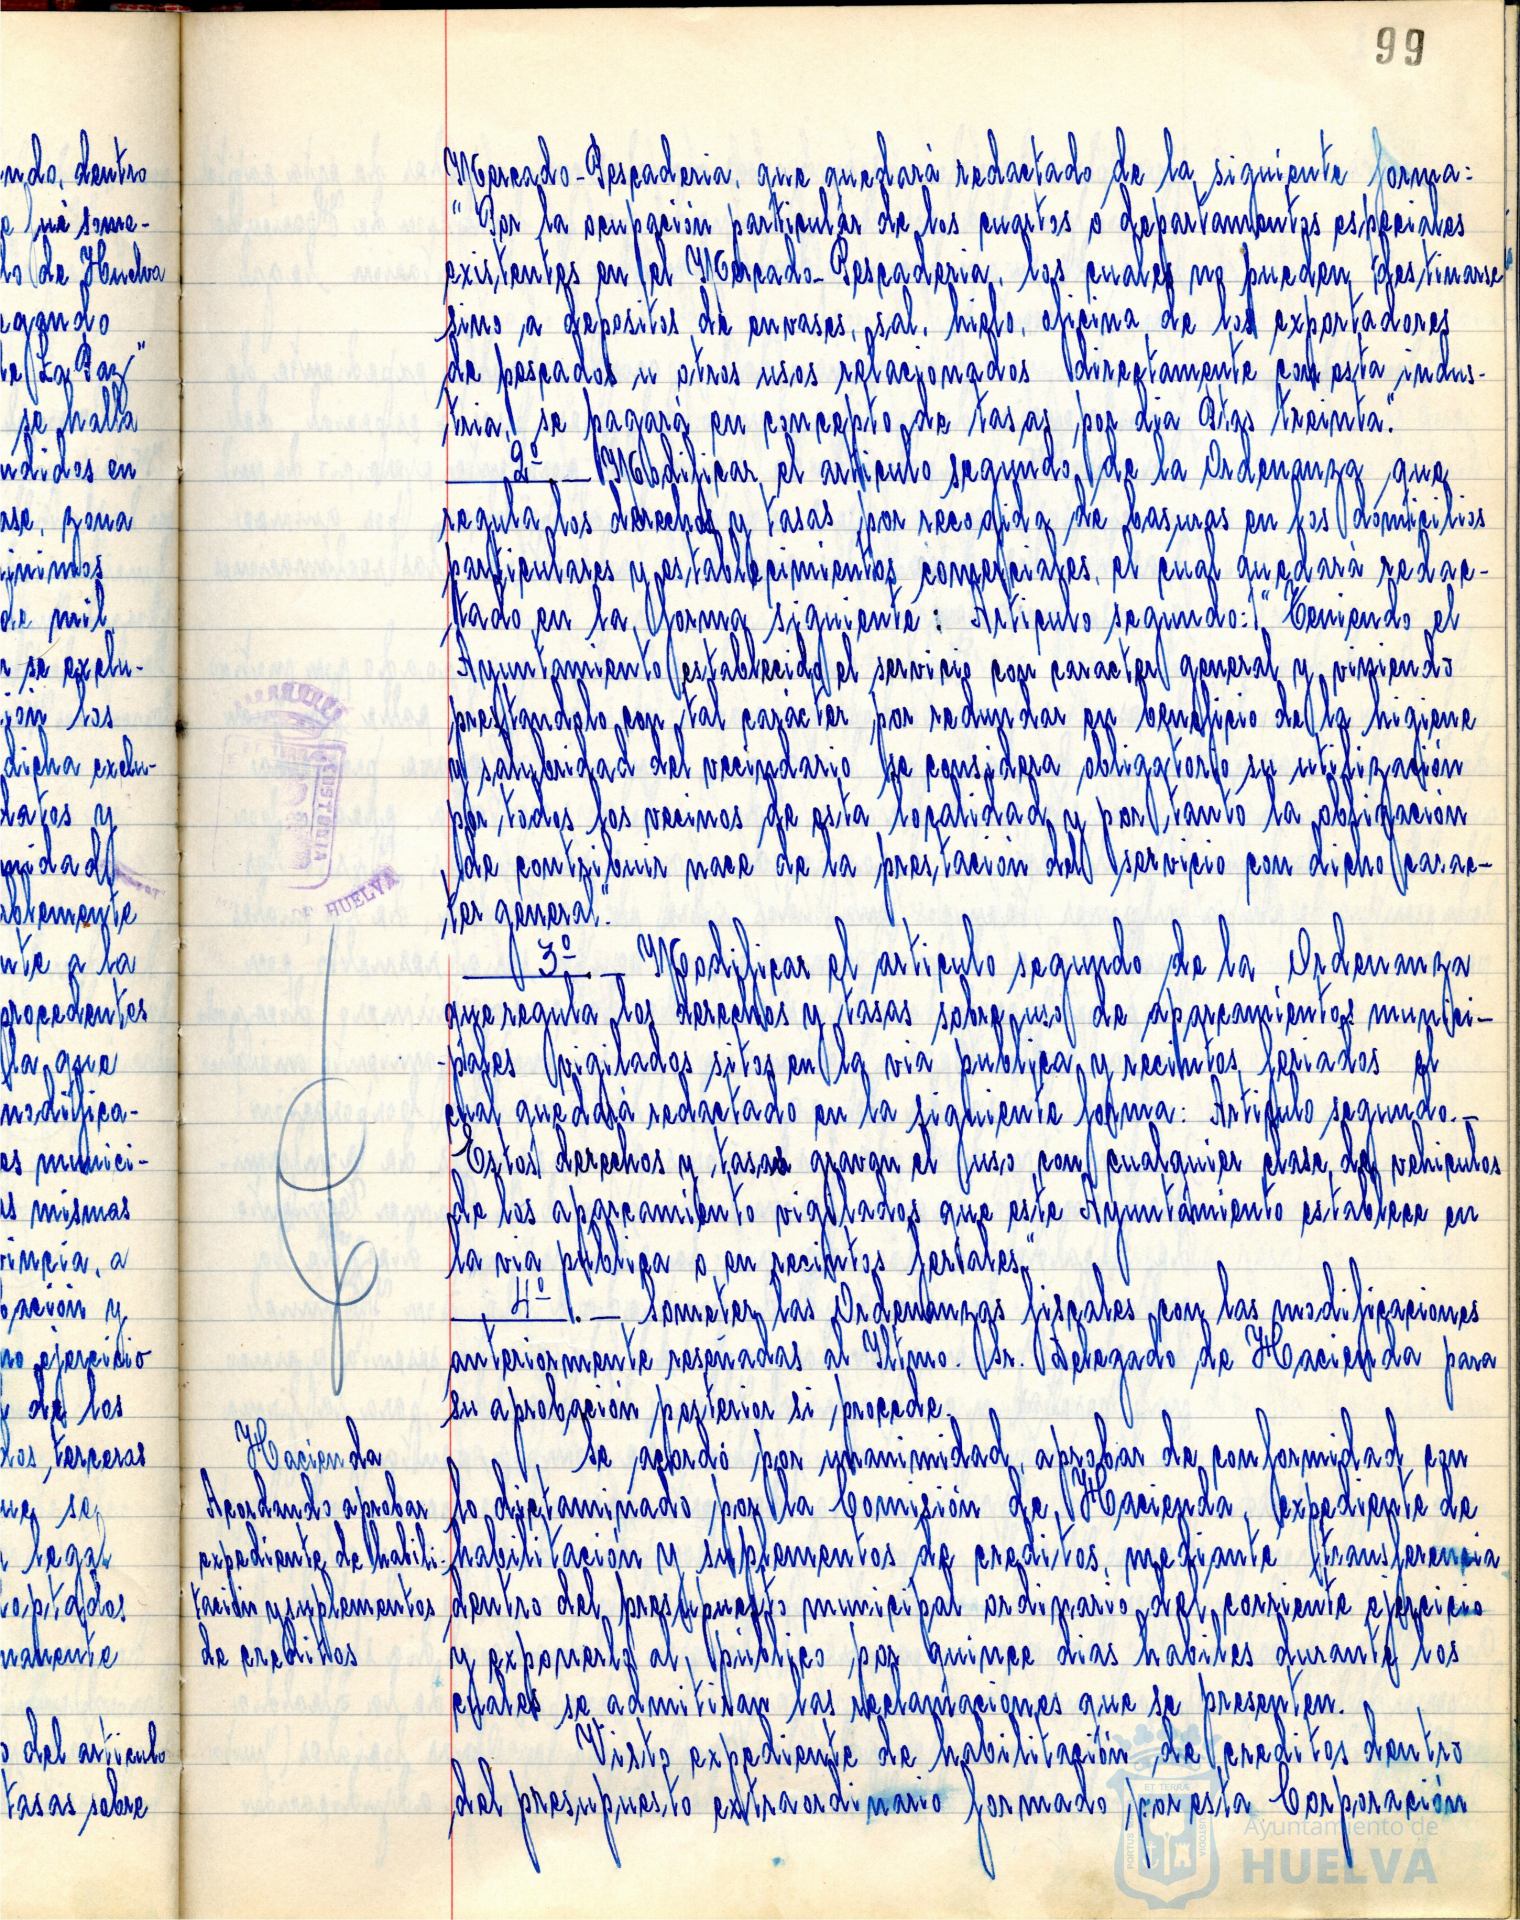 99
ndo, dentro
e fué some-
lo de Huelva
te La Paz"
se halla
ndidos en
ase, zona
de mil
r se exclu-
ión los
dicha exclu-
datos y
midad
nte a la
procedentes
la que
modifica-
es munici-
as mismas
vincia, a
bación y
mo ejercicio
y de los
dos, terceros
ue se
legal
namente
o del articulo
tasas sobre
Mercado-Pescaderia, que quedará redactado de la siguiente forma:
"Por la ocupación particular de los cuartos o departamentos especiales
existentes en el Mercado-Pescaderia, los cuales no pueden destinarse
sino a depositos de envases, sal, hielo, oficina de los exportadores
de pescados u otros usos relacionados directamente con esta indus-
tria, se pagará en concepto de tasas por dia Ptas treinta."
2º.- Modificar el articulo segundo de la Ordenanza que
regula los derechos y tasas por recogida de basuras en los domicilios
particulares y establecimientos comerciales, el cual quedará redac-
tado en la forma siguiente: Articulo segundo: "Teniendo el
Ayuntamiento establecido el servicio con caracter general y viniendo
prestandolo con tal carácter por redundar en beneficio de la higiene
y salubridad del vecindario se considera obligatorio su utilización
por todos los vecinos de esta localidad y por tanto la obligación
de contribuir nace de la prestación del servicio con dicho carac-
ter general."
3º.- Modificar el articulo segundo de la Ordenanza
que regula los derechos y tasas sobre uso de aparcamientos munici-
pales vigilados sitos en la via publica y recintos feriados el
cual quedará redactado en la siguiente forma: Articulo segundo.-
Estos derechos y tasas gravan el uso con cualquier clase de vehiculos
de los aparcamiento vigilados que este Ayuntamiento establece en
la via publica o en recintos feriales."
4º.- Someter las Ordenanzas fiscales con las modificaciones
anteriormente reseñadas al Iltmo. Sr. Delegado de Hacienda para
su aprobación posterior si procede.
Hacienda
Acordando aprobar
expediente de habili-
tación y suplementos
de creditos
Se acordó por unanimidad, aprobar de conformidad con
lo dictaminado por la Comisión de Hacienda, expediente de
habilitación y suplementos de creditos, mediante transferencia
dentro del presupuesto municipal ordinario del corriente ejercicio
y exponerlo al público por quince dias habiles durante los
cuales se admitiran las reclamaciones que se presenten.
Visto expediente de habilitación de creditos dentro
del presupuesto extraordinario formado por esta Corporación
CUSTODIA
HUELVA
ET TERRAE
PORTUS
CUSTODIA
Ayuntamiento de
HUELVA